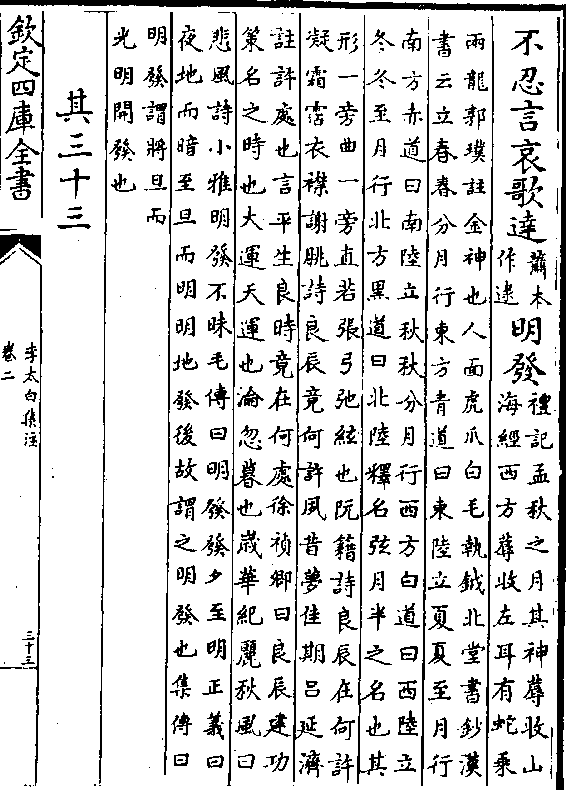 不忍言哀歌達蕭本作逮明發禮記孟秋之月其神蓐收山
海經西方蓐收左耳有蛇乘
兩龍郭璞註金神也人面虎爪白毛執鉞北堂書鈔漢
書云立春春分月行東方青道曰東陸立夏夏至月行
南方赤道曰南陸立秋秋分月行西方白道曰西陸立
冬冬至月行北方黑道曰北陸釋名弦月半之名也其
形一旁曲一旁直若張弓弛絃也阮籍詩良辰在何許
凝霜霑衣襟謝朓詩良辰竟何許夙昔夢佳期呂延濟
註許處也言平生良時竟在何處徐禎卿曰良辰建功
策名之時也大運天運也淪忽暮也歲華紀麗秋風曰
悲風詩小雅明發不昧毛傳曰明發發夕至明正義曰
夜地而暗至旦而明明地發後故謂之明發也集傳曰
明發謂將旦而
光明開發也
其三十三
欽定四庫全書
李太白集注
卷二
三十三